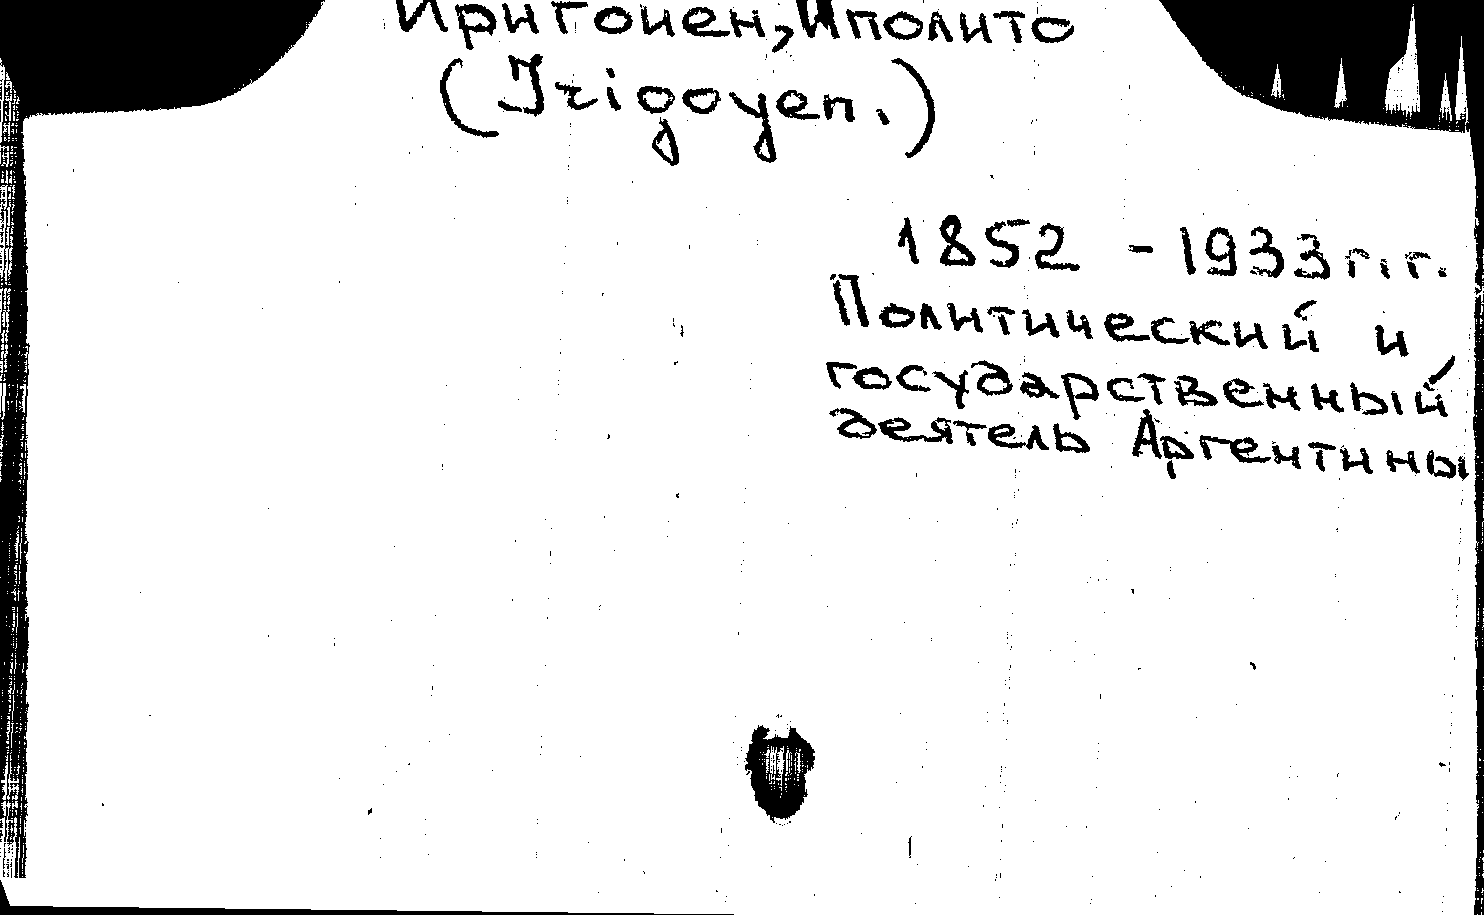 Иригоиен, Иполито
(Irigoyen.)
1852 - 1933 г.г.
Политический и
государственный
деятель Аргентины